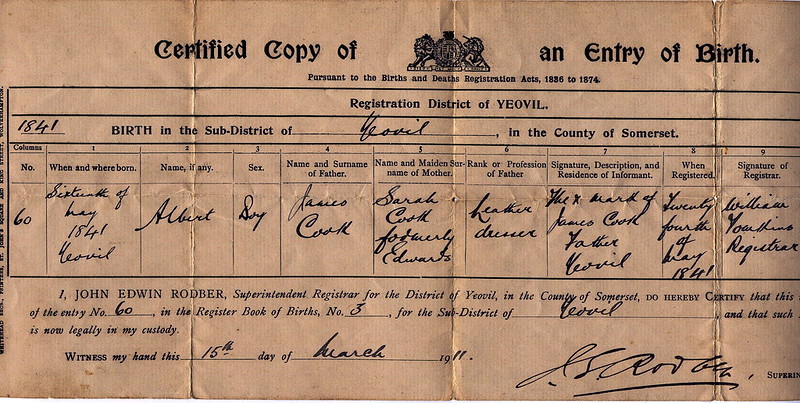 Certified Copy of an Entry of Birth.
Pursuant to the Births and Deaths Registration Acts, 1836 to 1874.
Registration District of YEOVIL.
1841 BIRTH in the Sub-District of Yeovil, in the County of Somerset.
Columns 1 2 3 4 5 6 7 8 9
No. When and where born. Name, if any. Sex. Name and Surname of Father. Name and Maiden Surname of Mother. Rank or Profession of Father. Signature, Description, and Residence of Informant. When Registered. Signature of Registrar.
60
Sixteenth of
May
1841
Yeovil
Albert
Boy
James
Cook
Sarah
Cook
formerly
Edwards
Leather
dresser
The x mark of
James Cook
Father
Yeovil
Twenty
fourth
of
May
1841
William
Registrar
I, JOHN EDWIN RODBER, Superintendent Registrar for the District of Yeovil, in the County of Somerset, DO HEREBY CERTIFY that this
of the entry No. 60, in the Register Book of Births, No. 3, for the Sub-District of Yeovil, and that such
is now legally in my custody.
WITNESS my hand this 15th day of March 1911.
J. E. Rodber, SUPERIN
WHITEHEAD BROS., PRINTERS, ST. JOHN'S SQUARE AND KING STREET, WOLVERHAMPTON.